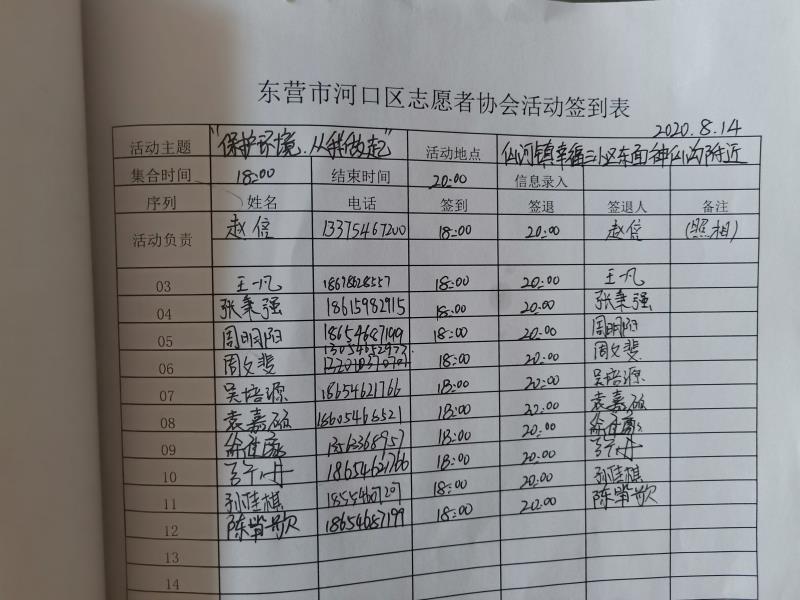 东营市河口区志愿者协会活动签到表
2020.8.14
活动主题 "保护环境、从我做起" 活动地点 仙河镇幸福三小区东面神仙沟附近
集合时间 18:00 结束时间 20:00 信息录入
序列 姓名 电话 签到 签退 签退人 备注
活动负责 赵信 13375467200 18:00 20:00 赵信 (照相)
03 王一凡 18678628557 18:00 20:00 王一凡
04 张秉强 18615982915 18:00 20:00 张秉强
05 周明阳 18654687199 18:00 20:00 周明阳
06 周文斐 18:00 20:00 周文斐
07 吴培源 18654621766 18:00 20:00 吴培源
08 袁嘉 18:00 20:00 袁嘉
09 18:00 20:00
10 18654621766 18:00 20:00
11 孙佳棋 18:00 20:00 孙佳棋
12 陈 歌 18654687199 18:00 20:00 陈 歌
13
14